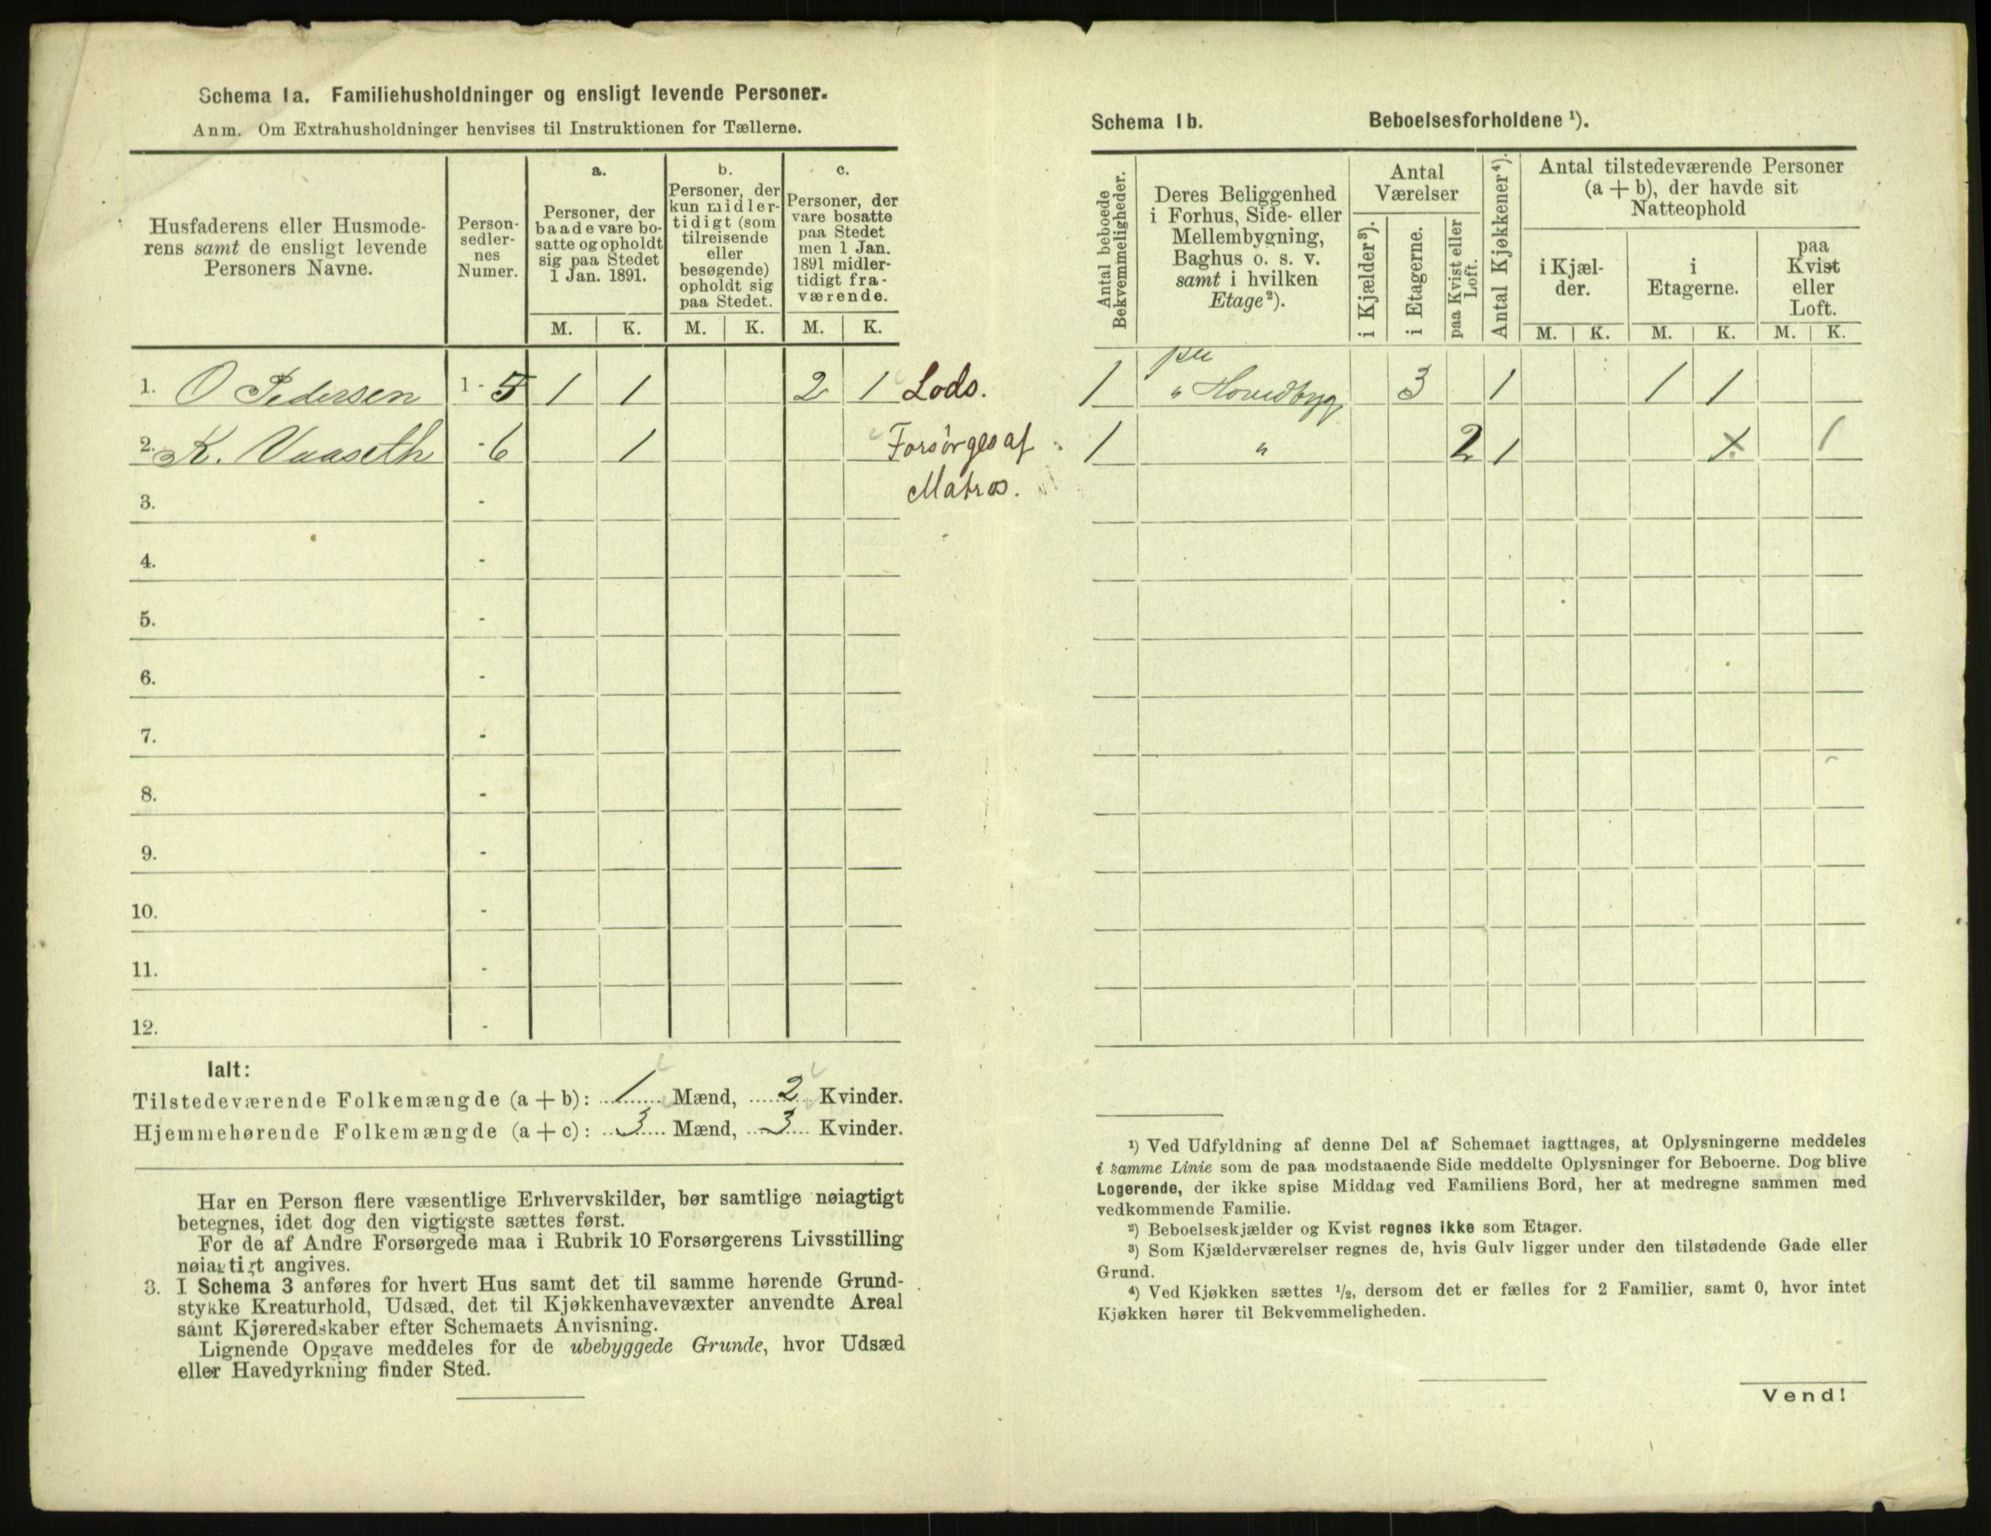 Schema 1a. Familiehusholdninger og ensligt levende Personer.
Anm. Om Extrahusholdninger henvises til Instruktionen for Tællerne.
Husfaderens eller Husmoderens samt de ensligt levende Personers Navne.
Personsedlernes Numer.
a.
Personer, der baade vare bosatte og opholdt sig paa Stedet 1 Jan. 1891.
b.
Personer, der kun midlertidigt (som tilreisende eller besøgende) opholdt sig paa Stedet.
c.
Personer, der vare bosatte paa Stedet men 1 Jan. 1891 midlertidigt fraværende.
M. K. M. K. M. K.
1. O Pedersen 1 - 5 1 1 2 1 Lods.
2. K. Vaaseth - 6 1 Forsørges af
Matros.
3. -
4. -
5. -
6. -
7. -
8. -
9. -
10. -
11. -
12. -
Ialt:
Tilstedeværende Folkemængde (a + b): 1 Mænd, 2 Kvinder.
Hjemmehørende Folkemængde (a + c): 3 Mænd, 3 Kvinder.
Har en Person flere væsentlige Erhvervskilder, bør samtlige nøiagtigt
betegnes, idet dog den vigtigste sættes først.
For de af Andre Forsørgede maa i Rubrik 10 Forsørgerens Livsstilling
nøiagtigt angives.
3. I Schema 3 anføres for hvert Hus samt det til samme hørende Grund-
stykke Kreaturhold, Udsæd, det til Kjøkkenhavevæxter anvendte Areal
samt Kjøreredskaber efter Schemaets Anvisning.
Lignende Opgave meddeles for de ubebyggede Grunde, hvor Udsæd
eller Havedyrkning finder Sted.
Schema 1b. Beboelsesforholdene ¹).
Antal beboede Bekvemmeligheder.
Deres Beliggenhed i Forhus, Side- eller Mellembygning, Baghus o. s. v. samt i hvilken Etage²).
Antal Værelser
i Kjælder³).
i Etagerne.
paa Kvist eller Loft.
Antal Kjøkkener⁴).
Antal tilstedeværende Personer (a + b), der havde sit Natteophold
i Kjælder.
i Etagerne.
paa Kvist eller Loft.
M. K. M. K. M. K.
1 " Hovedbyg 3 1 1 1
1 " 2 1 1 1
¹) Ved Udfyldning af denne Del af Schemaet iagttages, at Oplysningerne meddeles
i samme Linie som de paa modstaaende Side meddelte Oplysninger for Beboerne. Dog blive
Logerende, der ikke spise Middag ved Familiens Bord, her at medregne sammen med
vedkommende Familie.
²) Beboelseskjælder og Kvist regnes ikke som Etager.
³) Som Kjælderværelser regnes de, hvis Gulv ligger under den tilstødende Gade eller
Grund.
⁴) Ved Kjøkken sættes ½, dersom det er fælles for 2 Familier, samt 0, hvor intet
Kjøkken hører til Bekvemmeligheden.
Vend!